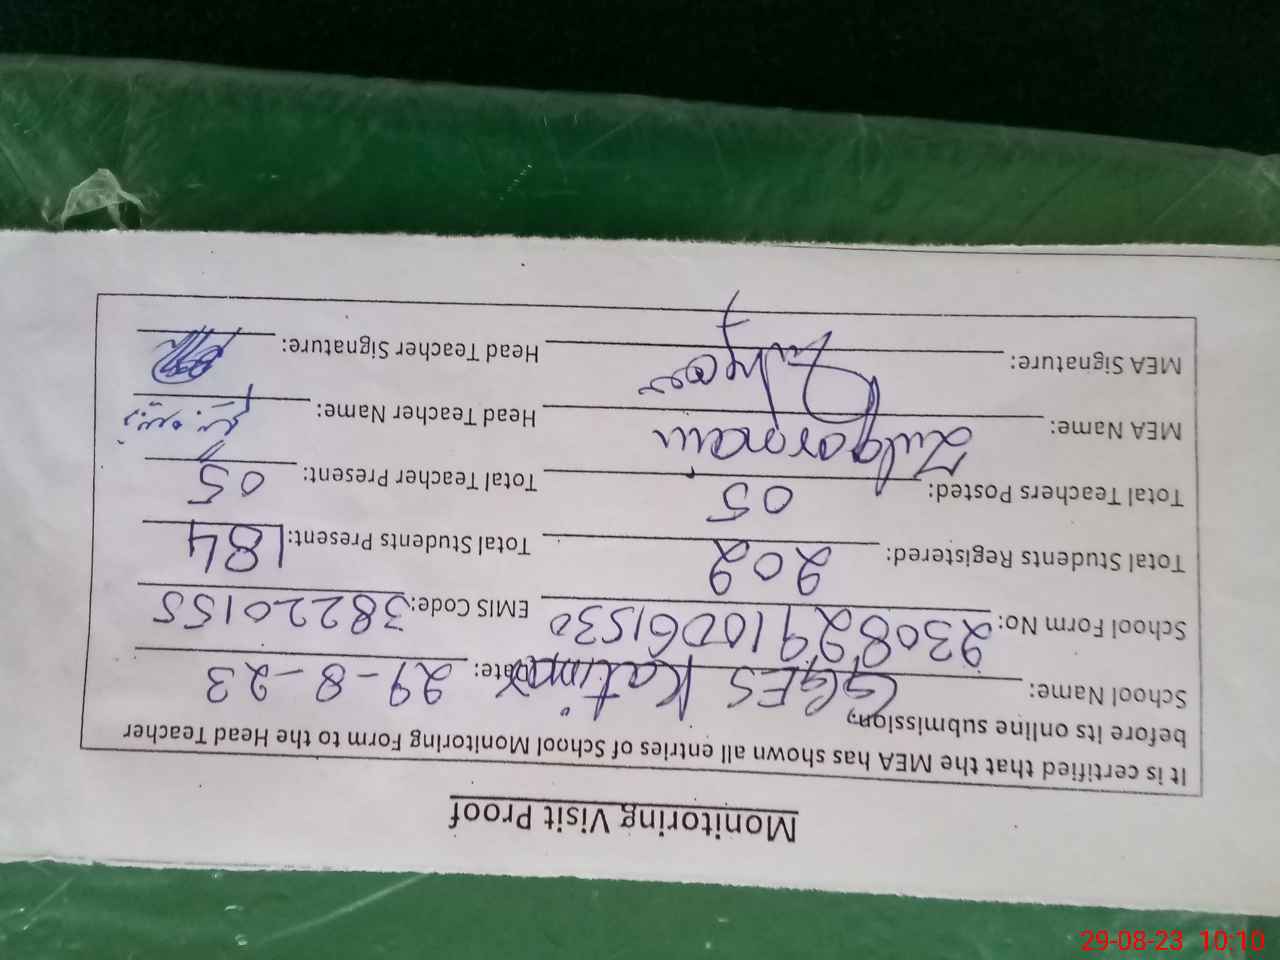 Monitoring Visit Proof
It is certified that the MEA has shown all entries of School Monitoring Form to the Head Teacher
before its online submission.
School Name: GGES Katimar Date: 29-8-23
School Form No: 23082910061530 EMIS Code: 38220155
Total Students Registered: 202 Total Students Present: 184
Total Teachers Posted: 05 Total Teacher Present: 05
MEA Name: Zulqarnain Head Teacher Name:
MEA Signature: Head Teacher Signature:
29-08-23 10:10